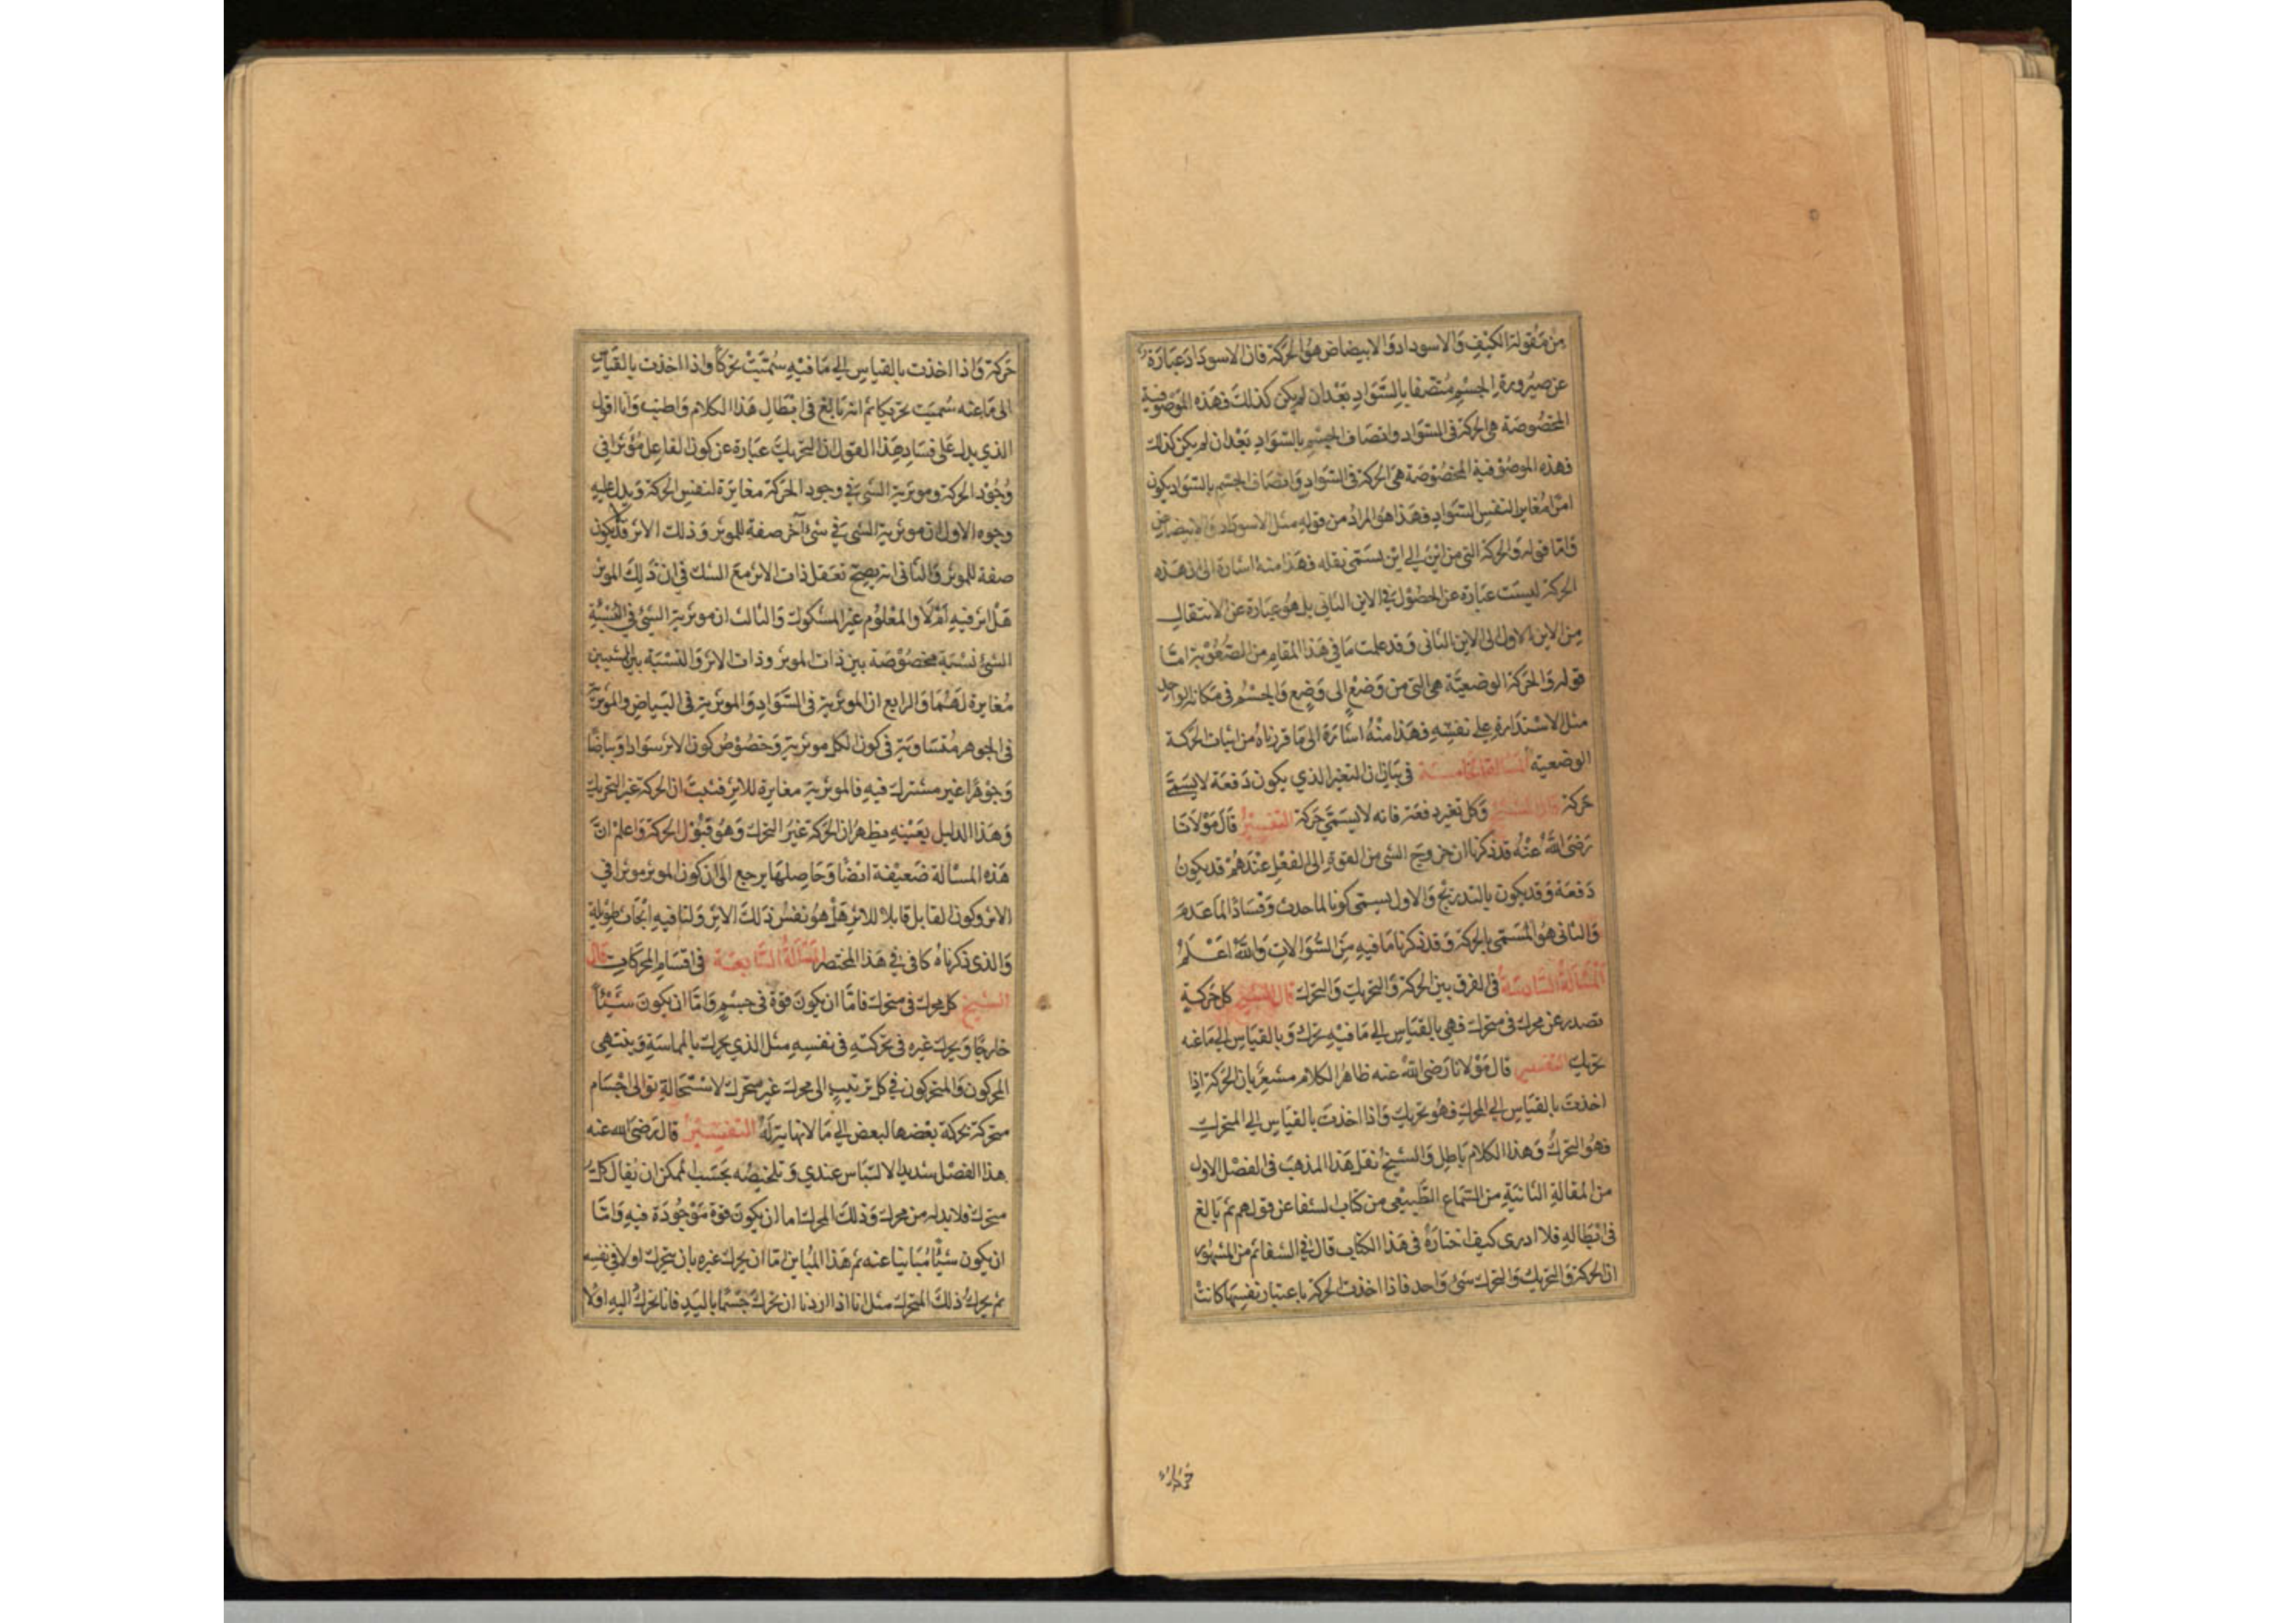 من مقولة الكيف والاسوداد والابيضاض هو الحركة فان الاسوداد عبارة
عن صيرورة الجسم متصفا بالسواد بعد ان لم يكن كذلك فهذه الموصوفية
المخصوصة هي الحركة في السواد واتصاف الجسم بالسواد بعد ان لم يكن كذلك
فهذه الموصوفية المخصوصة هي الحركة في السواد واتصاف الجسم بالسواد يكون
امرا مغايرا لنفس السواد فهذا هو المراد من قوله مثل الاسوداد والابيضاض
واما قوله والحركة التي من اين الى اين يسمى نقله فهذا منه اشارة الى ان هذه
الحركة ليست عبارة عن الحصول في الاين الثاني بل هو عبارة عن الانتقال
من الاين الاول الى الاين الثاني وقد علمت ما في هذا المقام من الصعوبة اما
قوله والحركة الوضعية هي التي من وضع الى وضع والجسم في مكانه الواحد
مثل الاستدارة على نفسه فهذا منه اشارة الى ما قررناه من اثبات الحركة
الوضعية المسألة الخامسة في بيان ان التغير الذي يكون دفعة لا يسمى
حركة قال الشيخ وكل تغير دفعة فانه لا يسمى حركة التفسير قال مولانا
رضى الله عنه قد ذكرنا ان خروج الشئ من القوة الى الفعل عندهم قد يكون
دفعة وقد يكون بالتدريج والاول يسمى كونا لما حدث وفسادا لما عدم
والثاني هو المسمى بالحركة وقد ذكرنا ما فيه من السؤالات والله اعلم
المسألة السادسة في الفرق بين الحركة والتحريك والتحرك قال الشيخ كل حركة
تصدر عن محرك في متحرك فهي بالقياس الى ما فيه تحرك وبالقياس الى ما عنه
تحريك التفسير قال مولانا رضى الله عنه ظاهر الكلام مشعر بان الحركة اذا
اخذت بالقياس الى المحرك فهو تحريك واذا اخذت بالقياس الى المتحرك
فهو التحرك وهذا الكلام باطل والشيخ نقل هذا المذهب في الفصل الاول
من المقالة الثانية من السماع الطبيعي من كتاب الشفا عن قولهم ثم بالغ
في ابطاله فلا ادرى كيف اختاره في هذا الكتاب قال في الشفا ثم من المشهور
ان الحركة والتحريك والتحرك شئ واحد فاذا اخذت الحركة باعتبار نفسها كانت
حركة واذا اخذت بالقياس الى ما فيه سميت تحركا واذا اخذت بالقياس
الى ما عنه سميت تحريكا ثم انه بالغ في ابطال هذا الكلام واطنب وانا اقول
الذي يدل على فساد هذا القول ان التحريك عبارة عن كون الفاعل مؤثرا في
وجود الحركة وموثرية الشئ في وجود الحركة مغايرة لنفس الحركة ويدل عليه
وجوه الاول ان موثرية الشئ في شئ آخر صفة للموثر وذلك الاثر قد لا يكون
صفة للموثر والثاني انه يصح تعقل ذات الاثر مع الشك في ان ذلك الموثر
هل اثر فيه أم لا والمعلوم غير المشكوك والثالث ان موثرية الشئ في
الشئ نسبة مخصوصة بين ذات الموثر وذات الاثر والنسبة بين الشيين
مغايرة لهما والرابع ان الموثرية في السواد والموثرية في البياض والموثرية
في الجوهر متساوية في كون الكل موثرية وخصوص كون الاثر سوادا وبياضا
وجوهرا غير مشترك فيه فالموثرية مغايرة للاثر فثبت ان الحركة غير التحريك
وهذا الدليل بعينه يظهر ان الحركة غير التحرك وهو قبول الحركة واعلم ان
هذه المسألة ضعيفة ايضا وحاصلها يرجع الى ان كون الموثر موثرا في
الاثر وكون القابل قابلا للاثر هل هو نفس ذلك الاثر ولنا فيه ابحاث طويلة
والذي ذكرناه كافي في هذا المختصر المسألة السابعة في اقسام المحركات قال
الشيخ كل محرك في متحرك فاما ان يكون قوة في جسم واما ان يكون شيئا
خارجا ويحرك غيره في حركته في نفسه مثل الذي يحرك بالمماسة وينتهى
المحركون والمتحركون في كل ترتيب الى محرك غير متحرك لاستحالة توالى اجسام
متحركة بحركة بعضها لبعض الى ما لا نهاية له التفسير قال رضى الله عنه
هذا الفصل شديد الالتباس عندي وتلخيصه بحسب الممكن ان يقال كل
متحرك فلا بد له من محرك وذلك المحرك اما ان يكون قوة موجودة فيه واما
ان يكون شيئا مباينا عنه ثم هذا المباين اما ان يحرك غيره بان يتحرك اولا في نفسه
ثم يحرك ذلك المتحرك مثل انا اذا اردنا ان نحرك جسما باليد فانا نحرك اليد اولا